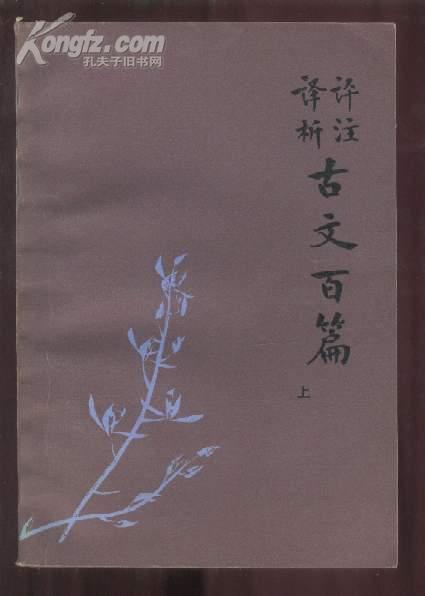 Kongfz.com
孔夫子旧书网
评注
译析
古文百篇
上